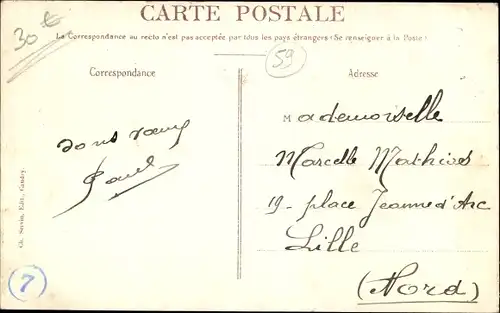 30€
CARTE POSTALE
La Correspondance au recto n'est pas acceptée par tous les pays étrangers (Se renseigner à la Poste)
59
Correspondance
Adresse
Paul
Mademoiselle
Marcelle Mathives
19 - place Jeanne d'Arc
Lille
(Nord)
Ch. Savin, Edit., Candry.
7